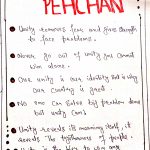 PEHCHAN
Unity removes fear and gives strength
to face problems.
Never go out of unity you cannot
win alone.
Our unity is our identity that is why
our country is great.
No one can solve big problem alone
but unity can.
Unity reveals its meaning itself, it
reveals the togetherness of people.
is the to win any